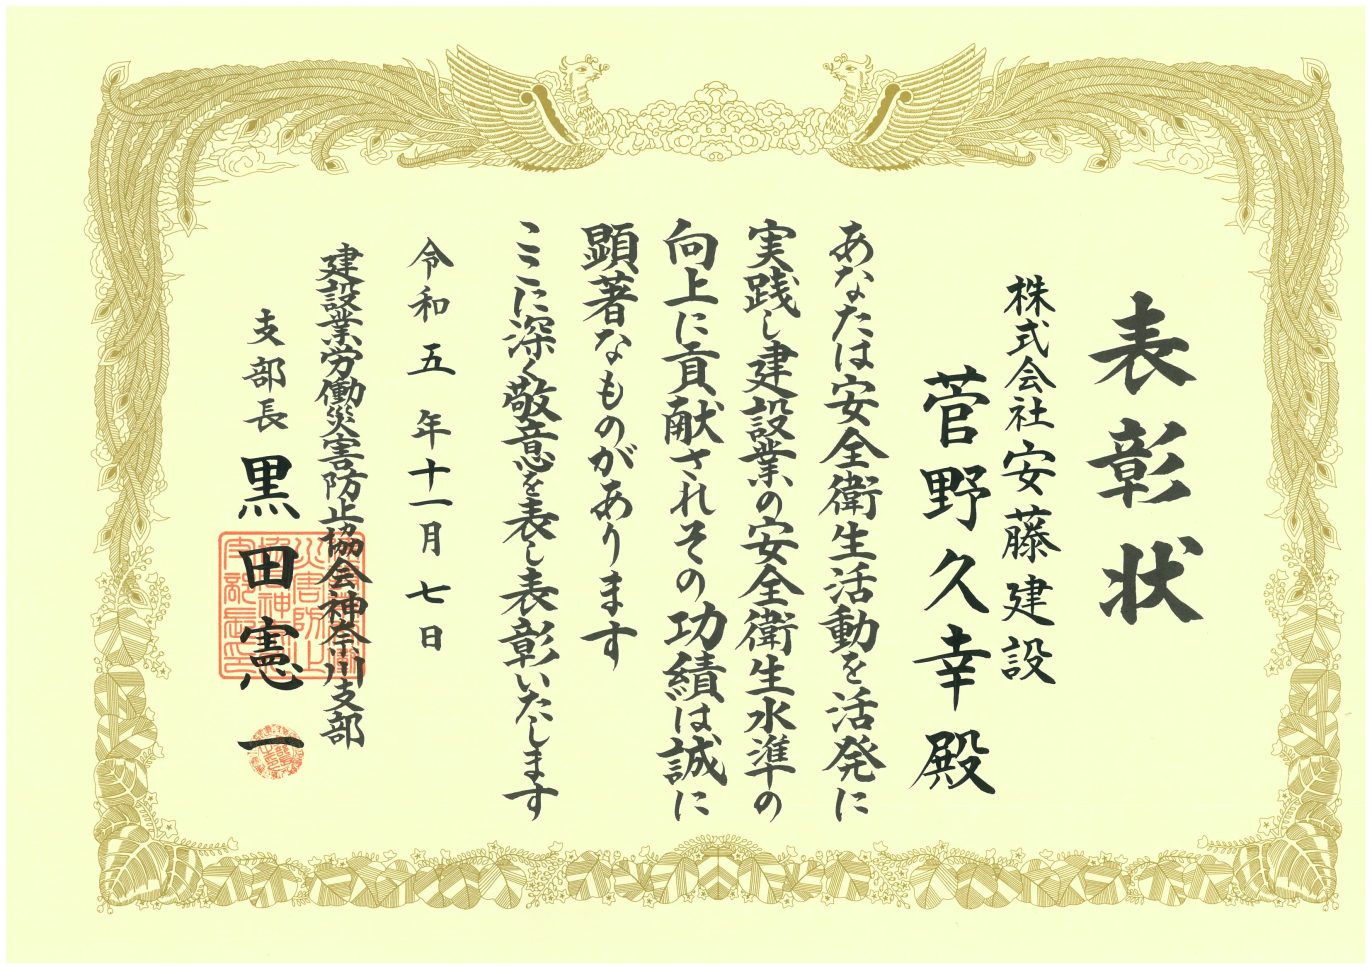 表彰状
株式会社安藤建設
菅野久幸殿
あなたは安全衛生活動を活発に
実践し建設業の安全衛生水準の
向上に貢献されその功績は誠に
顕著なものがあります
ここに深く敬意を表し表彰いたします
令和五年十一月七日
建設業労働災害防止協会神奈川支部
支部長 黒田憲一